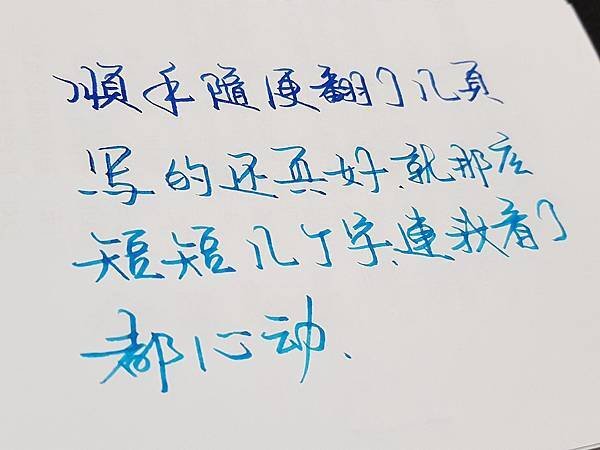 順手隨便翻了几頁
写的还真好、就那麽
短短几个字、連我看了
都心动、